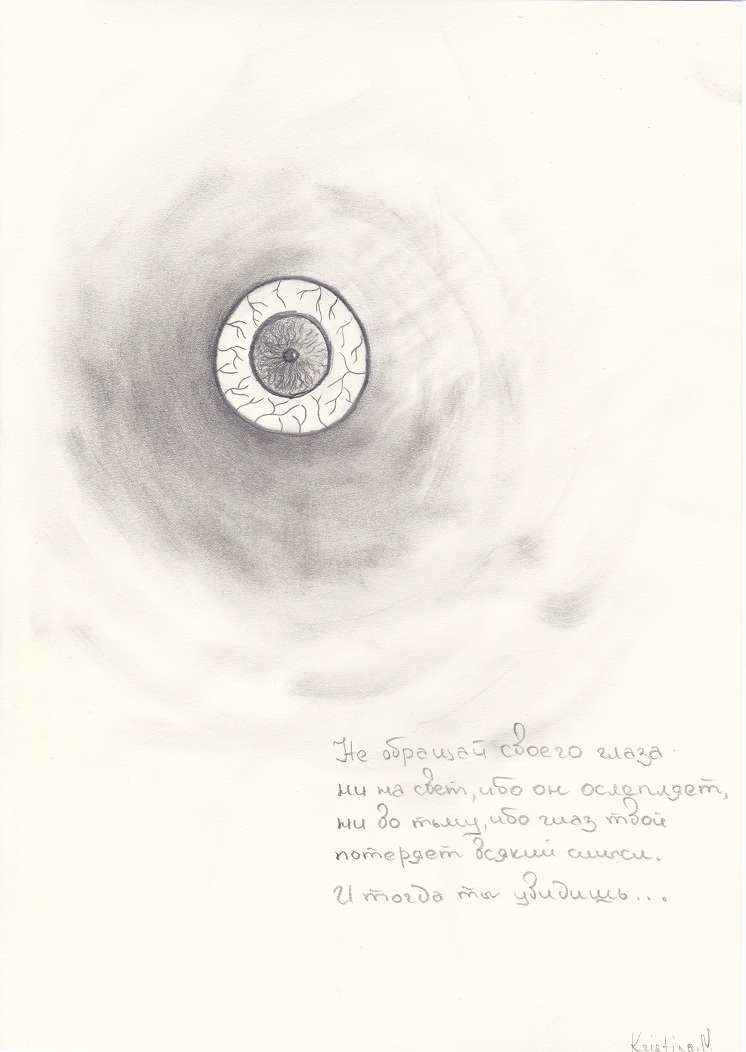 Не обращай своего глаза
ни на свет, ибо он ослепляет,
ни во тьму, ибо глаз твой
потеряет всякий смысл.
И тогда ты увидишь...
Kristina.N.